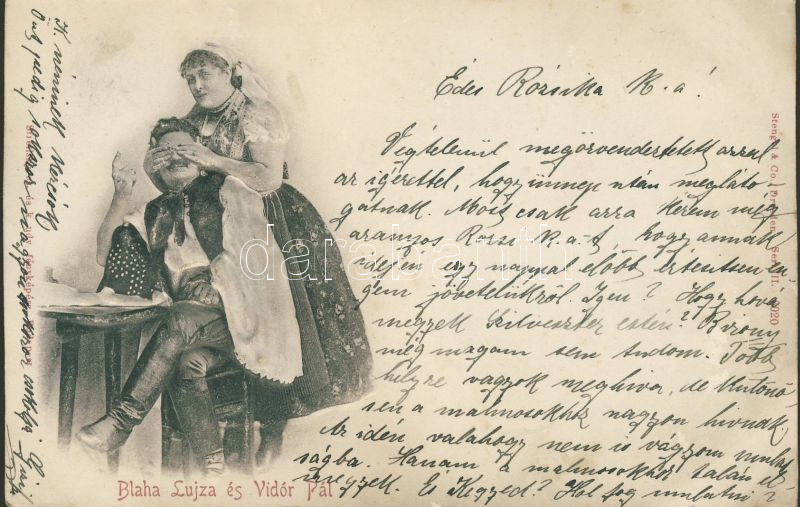 Édes Rózsika K. a!
Végtelenül megörvendeztetett azzal
az igérettel, hogy ünnep után megláto-
gatnak. Most csak arra kérem még
aranyos Rózsi K. a-t, hogy annak
idején egy nappal előbb értesitsen en-
gem jövetelükről. Igen? Hogy hová
megyek Szilveszter estén? Bizony
még magam sem tudom. Több
helyre vagyok meghiva, de különö-
sen a malmosokhoz nagyon hivnak.
Az idén valahogy nem is vágyom mulat-
ságba. Hanem a malmosokhoz talán el-
megyek. És Kegyed? Hol fog mulatni?
K. néninek
Önt pedig sokszor
Blaha Lujza és Vidór Pál
Stengel & Co., Dresden Serie II. 2020
darabanth